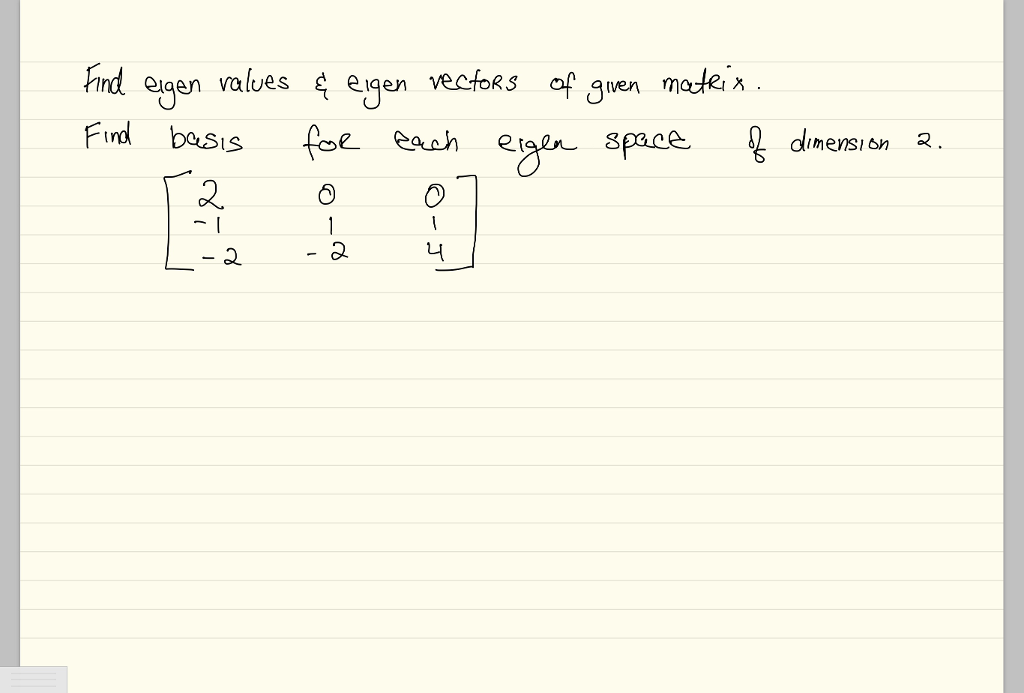 Find eigen values & eigen vectors of given matrix.
Find basis for each eigen space of dimension 2.
2 0 0
-1 1 1
-2 -2 4